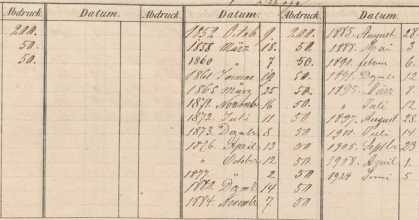 Abdruck. Datum. Abdruck. Datum. Abdruck. Datum.
200. 1852 Octob 9. 200. 1885. August 28
50. 1858 März 18. 50. 1888. Mai 3
50. 1860 " 7 50. 1891. 6
1861 19 50.
1865 März 25 50. 1895. März 7
1870. Novemb 16 50. " Juli 12
1872. Juli 11 50 1897. August 28
1873. 8 50 14
1876 April 13 50 1905. Septbr 23
" October 12 50. 1908. April 1
1877 " 2 50 1924 Juni 5
1882. 14 50
1884 Novemb 7 50